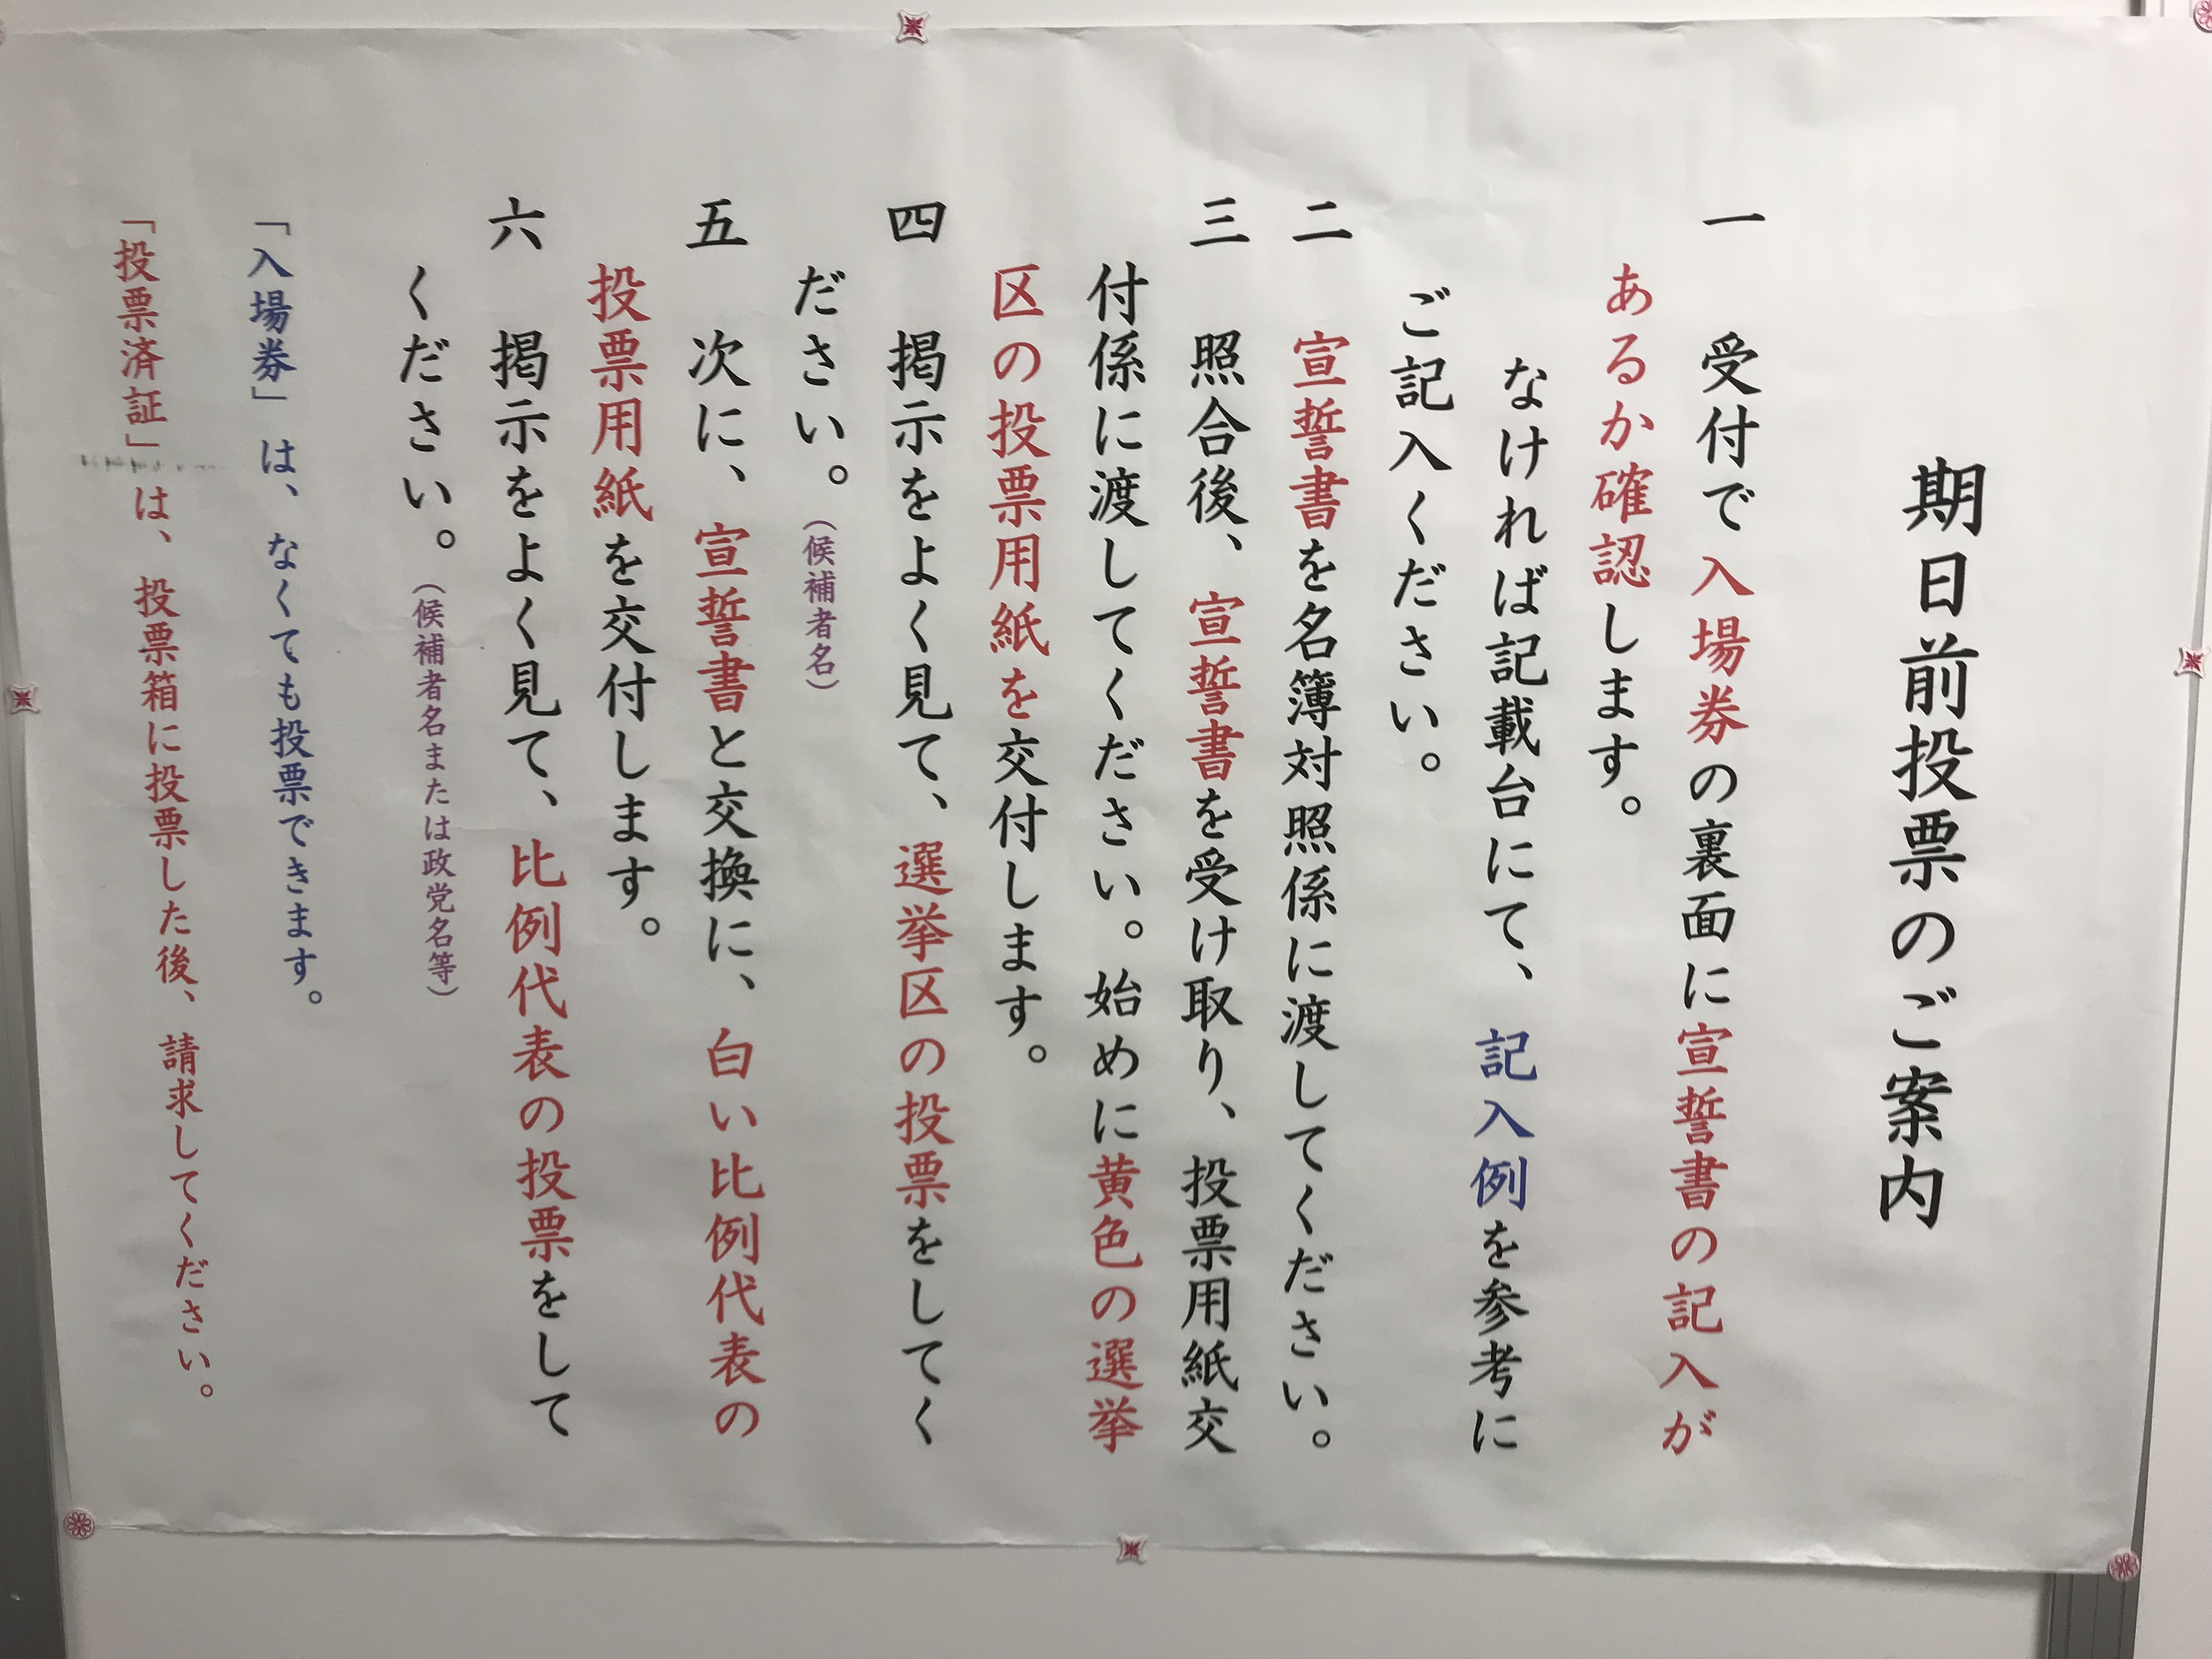 期日前投票のご案内
一　受付で入場券の裏面に宣誓書の記入が
あるか確認します。
なければ記載台にて、記入例を参考に
ご記入ください。
二　宣誓書を名簿対照係に渡してください。
三　照合後、宣誓書を受け取り、投票用紙交
付係に渡してください。始めに黄色の選挙
区の投票用紙を交付します。
四　掲示をよく見て、選挙区の投票をしてく
ださい。（候補者名）
五　次に、宣誓書と交換に、白い比例代表の
投票用紙を交付します。
六　掲示をよく見て、比例代表の投票をして
ください。（候補者名または政党名等）
「入場券」は、なくても投票できます。
「投票済証」は、投票箱に投票した後、請求してください。